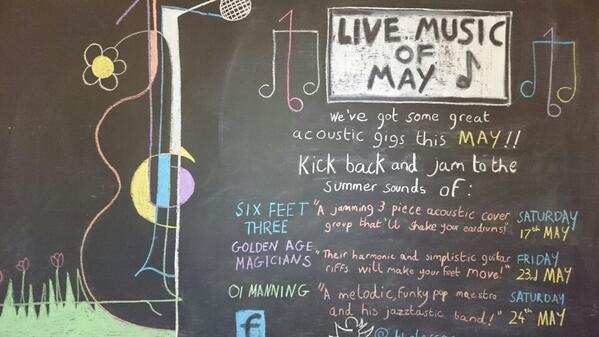 LIVE MUSIC
OF
MAY
We've got some great
acoustic gigs this MAY!!
Kick back and jam to the
summer sounds of:
SIX FEET THREE
"A jamming 3 piece acoustic cover
group that'll shake your eardrums!"
SATURDAY
17th MAY
GOLDEN AGE
MAGICIANS
"Their harmonic and simplistic guitar
riffs will make your feet move!"
FRIDAY
23rd MAY
OI MANNING
"A melodic, funky pop maestro
and his jazztastic band!"
SATURDAY
24th MAY
f